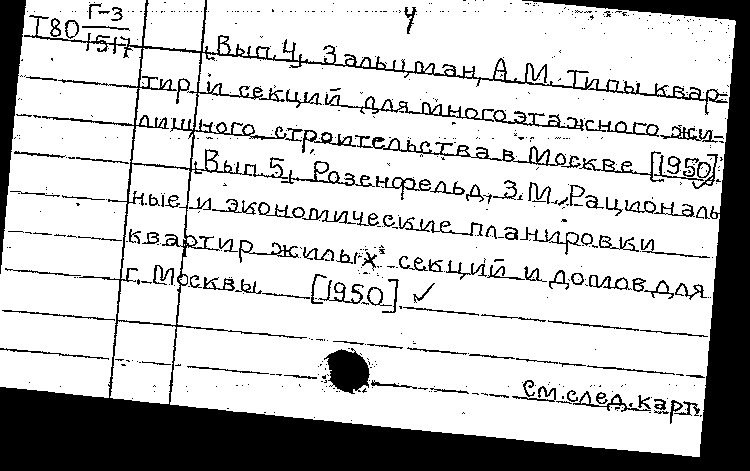 4
Т80 Г-3
1517
Вып. 4. Зальцман, А.М. Типы квар-
тир и секций для многоэтажного жи-
лищного строительства в Москве [1950]
Вып. 5. Розенфельд, З.М. Рациональ
ные и экономические планировки
квартир жилых секций и домов для
г. Москвы [1950] ✓
См. след. карт.